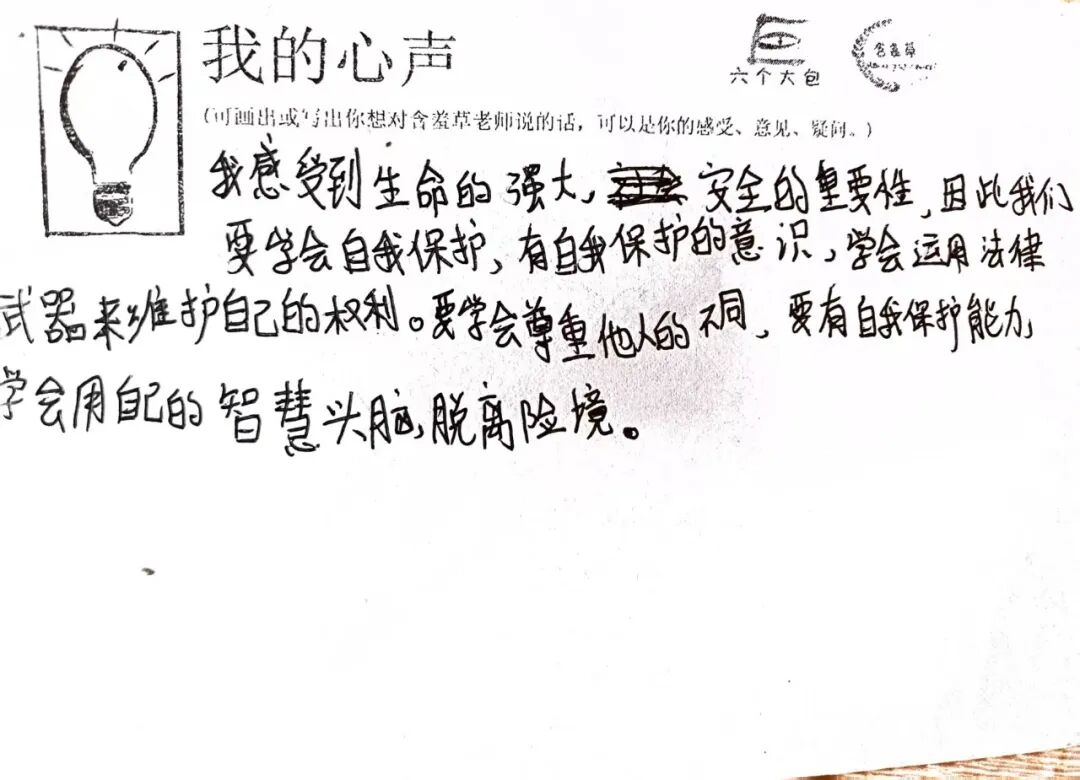 我的心声
六个大包
含羞草
(可画出或写出你想对含羞草老师说的话，可以是你的感受、意见、疑问。)
我感受到生命的强大，安全的重要性，因此我们
要学会自我保护，有自我保护的意识，学会运用法律
武器来维护自己的权利。要学会尊重他人的不同，要有自我保护能力，
学会用自己的智慧头脑，脱离险境。